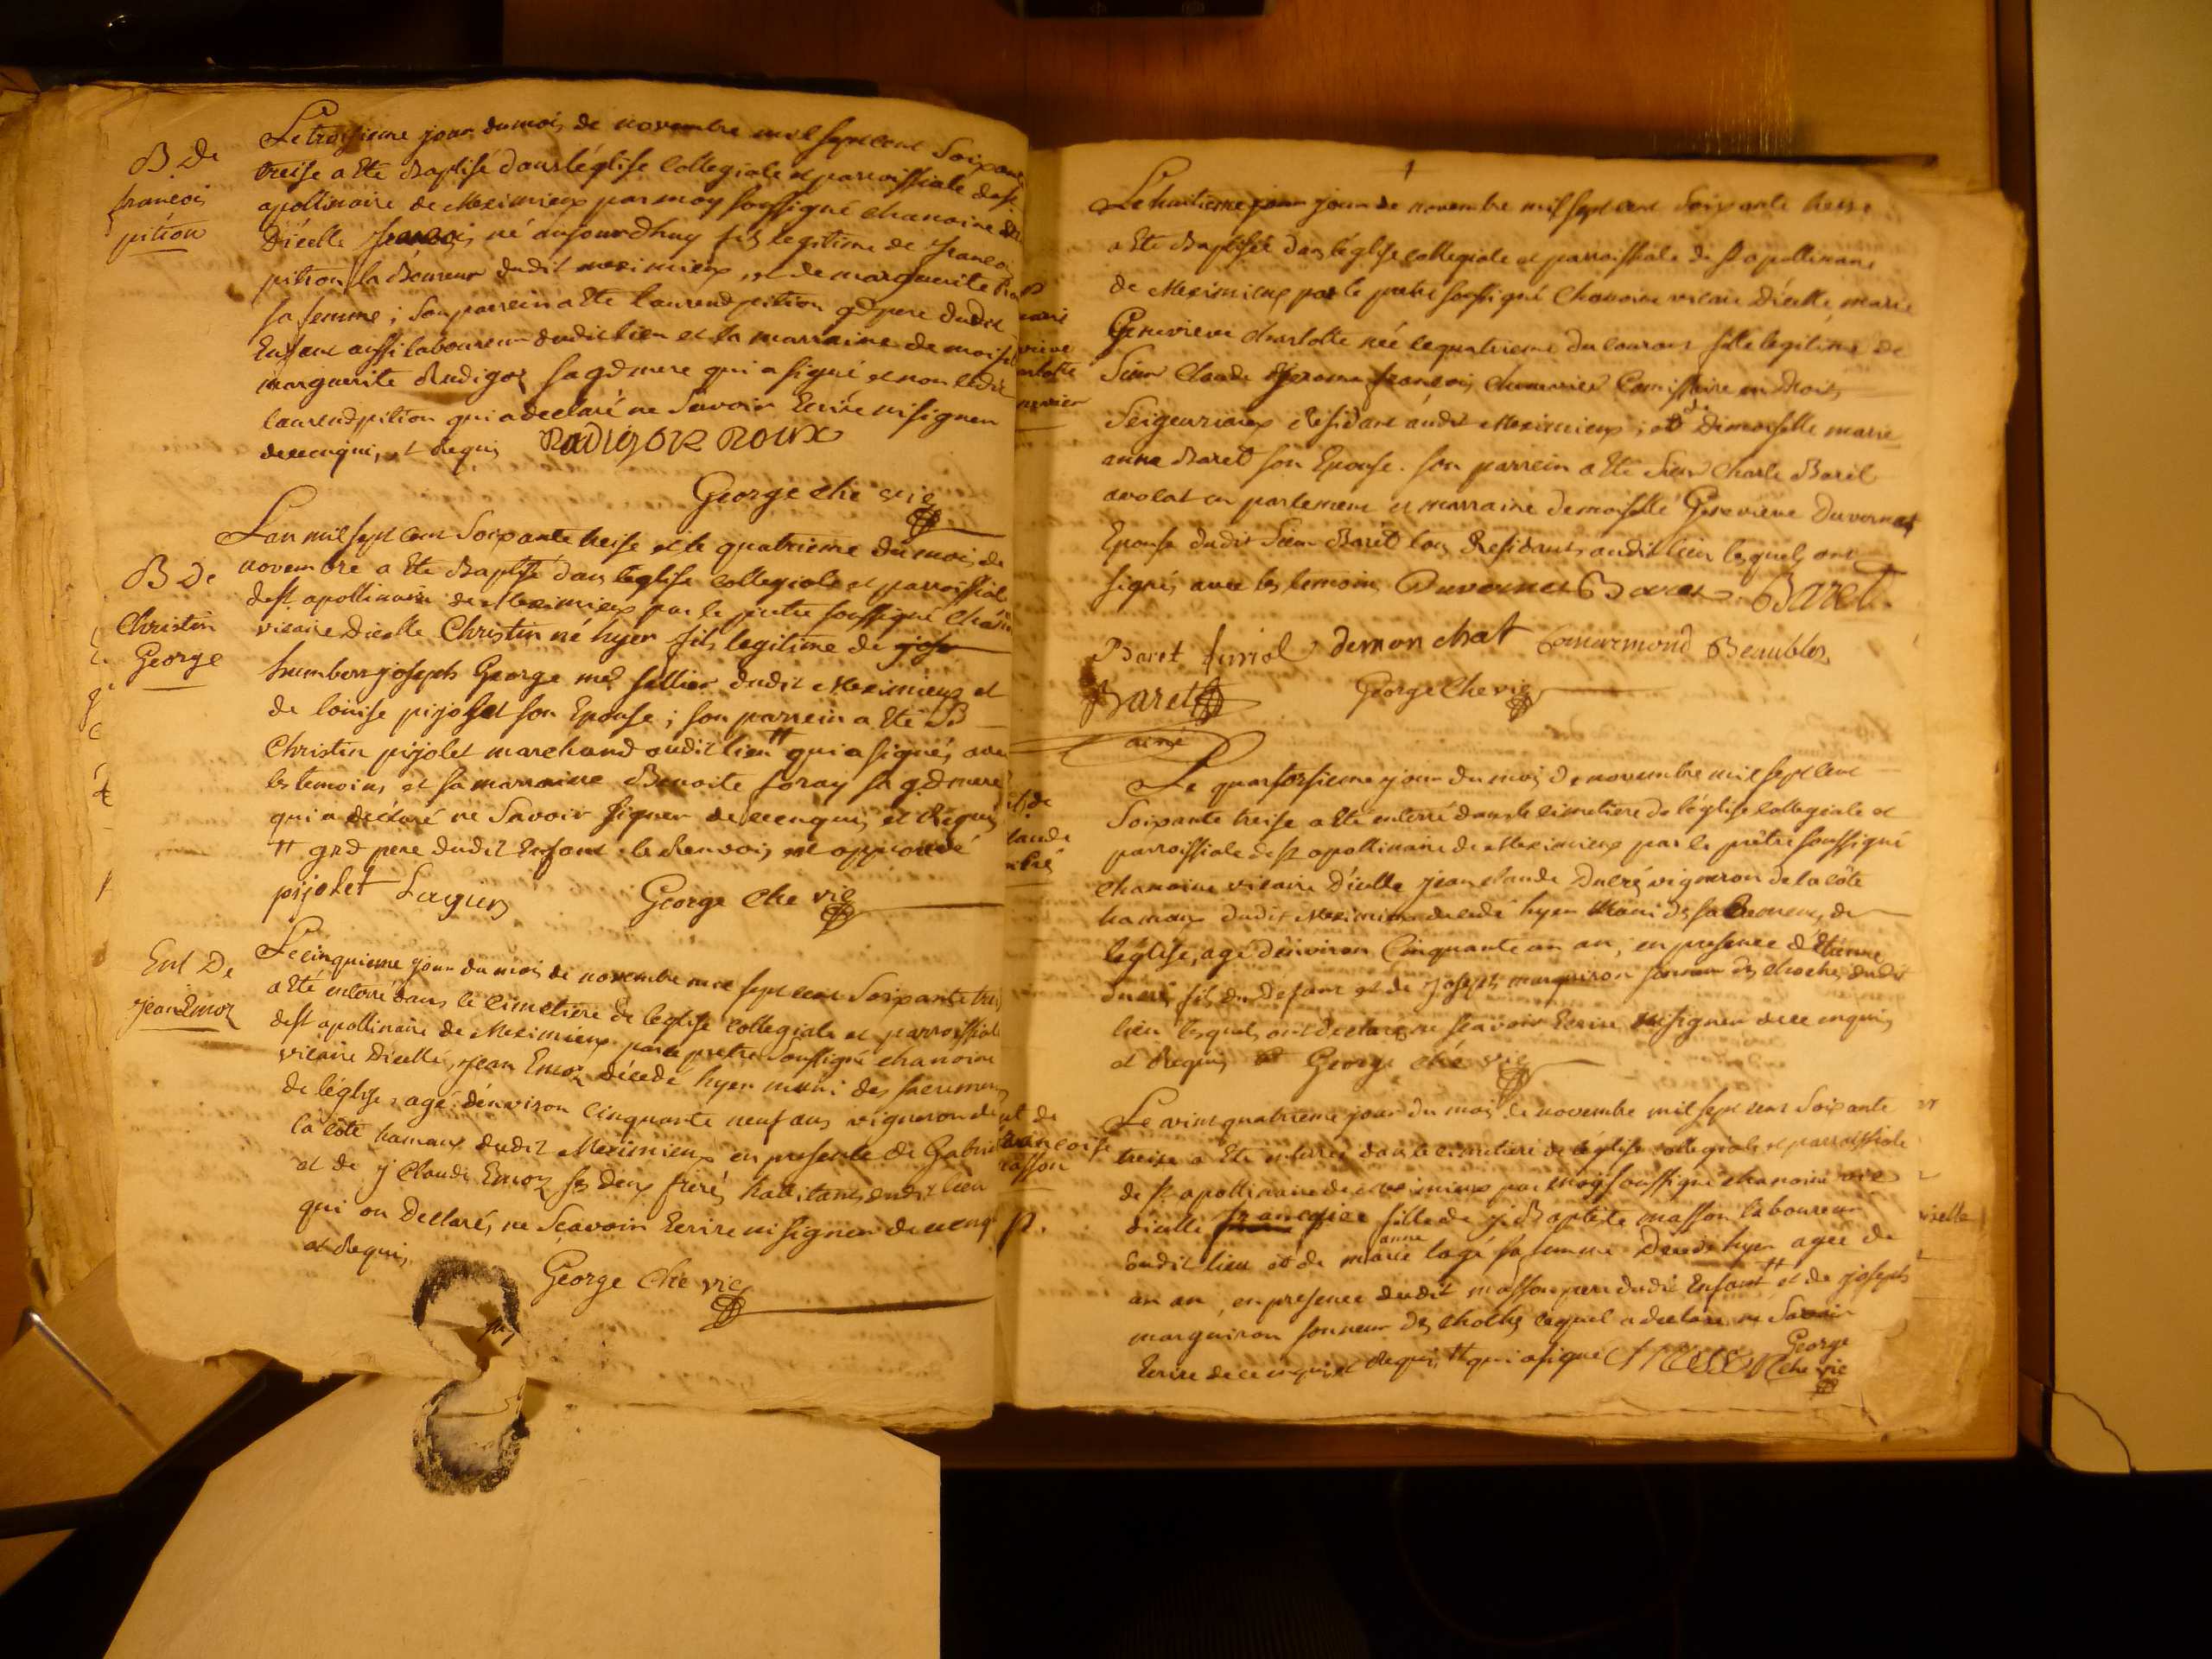 B. De
françois
pition
Le troisieme jour du mois de novembre mil sept cent Soixante
treise a Eté Baptisé dans léglise collegiale et parroissiale de st
apollinaire de Meximieux par moy soussigné chanoine
Dicelle françois né aujourdhuy fils legitime de françois
pition laboureur dudit meximieux, et de marguerite
sa femme; son parrein a Eté laurend pition gd pere dudit
Enfant aussi laboureur dudit lieu et sa marraine demoiselle
marguerite Rudigoz sa gd mere qui a signé et non ledit
laurend pition qui a declaré ne Savoir Ecrire ni signer
de ce enquis, et Requis Radigoz Roux
George che vic
B De
Christin
George
Lan mil sept cent Soixante treise et le quatrieme du mois de
novembre a Eté Baptisé dans léglise collegiale et parroissiale
de st apollinaire de Meximieux par le pretre soussigné chan
vicaire Dicelle Christin né hyer fils legitime de
humbert joseph George md sellier dudit Meximieux et
de louise pijolet son Epouse; son parrein a Eté
Christin pijolet marchand audit lieu # qui a signé, avec
les temoins et sa marraine Benoite foray sa gd mere
qui a declaré ne Savoir signer de ce enquis et Requis
# grd pere dudit Enfant le Renvois est approuvé
pijolet Laguin George Che vic
Ent De
jean Emoz
Le cinquieme jour du mois de novembre mil sept cent Soixante
a Eté enterré dans le cimetiere de léglise collegiale et parroissiale
de st apollinaire de Meximieux par le pretre soussigné chanoine
vicaire Dicelle, jean Emoz décedé hyer muni des sacremens
de léglise, agé dénviron Cinquante neuf ans vigneron de
la côte hamaux dudit Meximieux en presente de Gabriel
et de j Claude Emoz ses deux freres habitans dudit lieu
qui on Declaré, ne Sçavoir Ecrire ni signer de ce enq
et Requis,
George Che vic
Le huitieme jour de novembre mil sept cent Soixante treise
a Eté Baptisée dans léglise collegiale et parroissiale de st apollinaire
de Meximieux par le pretre soussigné Chanoine vicaire Dicelle, marie
Genevieve charlotte née le quatrieme du courant fille legitime de
Sieur Claude françois Comissaire en Droits
Seigeuriaux Residant audit Meximieux; et de Demoiselle marie
anne Baret son Epouse. son parrein a Eté Sieur Charle Baret
avocat en parlement et marraine demoiselle Genevieve Duvernay
Epouse dudit Sieur Baret tous Residants audit lieu lesquels ont
signés avec les temoins Duvernet Baret. Baret
Baret demonchat
Baret George Che vic
ainé
Le quartorsieme jour du mois de novembre mil sept cent
Soixante treise a Eté enterré dans le cimetiere de léglise collegiale et
parroissiale de st apollinaire de Meximieux par le prêtre soussigné
chanoine vicaire Dicelle jean claude Ducré vigneron de la côte
hamaux dudit Meximieux decedé hyer Muni des sacremens de
léglise, agé dénviron Cinquante un an, en presence d'Etienne
ducré fils du Defunt et de joseph marguiron sonneur des cloches dudit
lieu lesquels ont declaré ne sçavoir Ecrire ni signer de ce enquis
et Requis George Che vic
Le vint quatrieme jour du mois de novembre mil sept cent Soixante
treize a Eté enterrée dans le cimetiere de léglise collegiale et parroissiale
de st apollinaire de meximieux par moy soussigné chanoine vic
dicelle francoise fille de j. Baptiste masson laboureur
dudit lieu et de marie anne lagé sa femme Decede hyer agée de
un an, en presence dudit masson pere dudit Enfant # et de joseph
marguiron sonneur des cloches lequel a declaré ne Savoir
Ecrire de ce enquis et Requis, # qui a signé
George
che vic